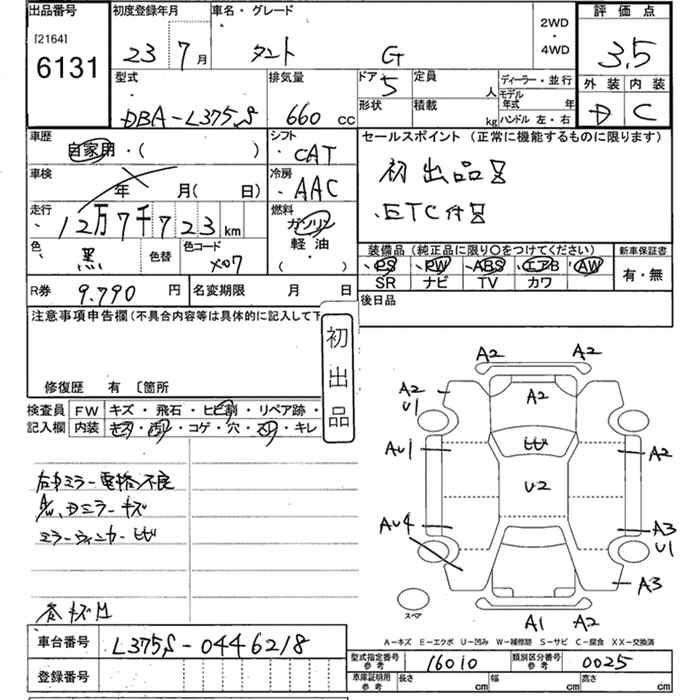 出品番号 初度登録年月 車名・グレード 評価点
[2164] 6131
23年7月 タント G 2WD・4WD 3.5
型式 排気量 ドア 5 定員 人 ディーラー・並行 外装 内装
DBA-L375S 660 cc 形状 積載 kg モデル年式 年 ハンドル 左・右 D C
車歴 自家用・( ) シフト ・CAT セールスポイント (正常に機能するものに限ります)
車検 年 月( 日) 冷房 ・AAC 初出品号
走行 12万7千723km 燃料 ガソリン 軽油 ・ ( ) ・ETC付号
色 黒 色替 色コード X07 装備品 (純正品に限り〇をつけてください) 新車保証書
PS PW ABS エアB AW 有・無
SR ナビ TV カワ
R券 9.790円 名変期限 月 日 後日品
注意事項申告欄(不具合内容等は具体的に記入して下
初出品
修復歴 有 〔箇所
検査員 FW キズ・飛石・ヒビ割・リペア跡・
記入欄 内装 キズ・汚れ・コゲ・穴・スレ・キレ
A2 A2
A2 U1 A2
AU1 ヒビ A2
U2
AU4 A3 U1
A3
A1 A2
スペア
ミラーウィンカーヒビ
A-キズ E-エクボ U-凹み W-補修跡 S-サビ C-腐食 XX-交換済
車台番号 L375S-0446218
登録番号
型式指定番号 参考 16010 類別区分番号 参考 0025
車庫証明用 参考 長さ cm 幅 cm 高さ cm